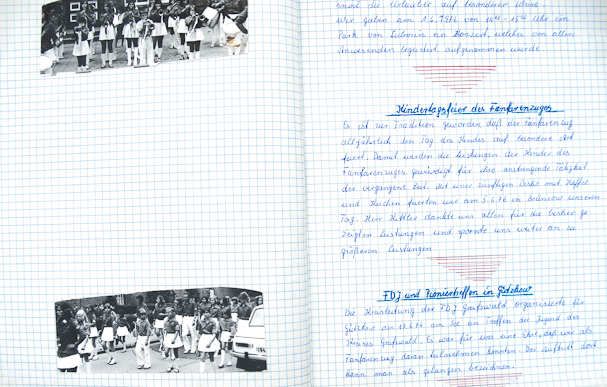 sowie die Urlauber auf besonderer Weise.
Wir gaben am 1.6.1976 von 14⁰⁰ - 15⁰⁰ Uhr im
Park von Lubmin ein Konzert, welches von allen
Anwesenden begeistert aufgenommen wurde
Kindertagsfeier des Fanfarenzuges
Es ist zur Tradition geworden, daß der Fanfarenzug
alljährlich den Tag des Kindes auf besondere Art
feiert. Damit werden die Leistungen der Kinder des
Fanfarenzuges gewürdigt für ihre anstrengende Tätigkeit
der vergangene Zeit. Mit einer zünftigen Disko mit Kaffee
und Kuchen feierten wir am 5.6.76 in unseren
Tag. Herr Kittler dankte uns allen für die bisher ge-
zeigten Leistungen und spornte uns weiter an zu
größeren Leistungen
FDJ und Pioniertreffen in Gützkow
Die Kreisleitung der FDJ Greifswald organisierte für
Gützkow am .6.76 am See ein Treffen der Jugend des
Kreises Greifswald. Es war für uns eine Ehre, daß wir als
Fanfarenzug daran teilnehmen konnten. Der Auftritt dort
kann man als gelungen bezeichnen.